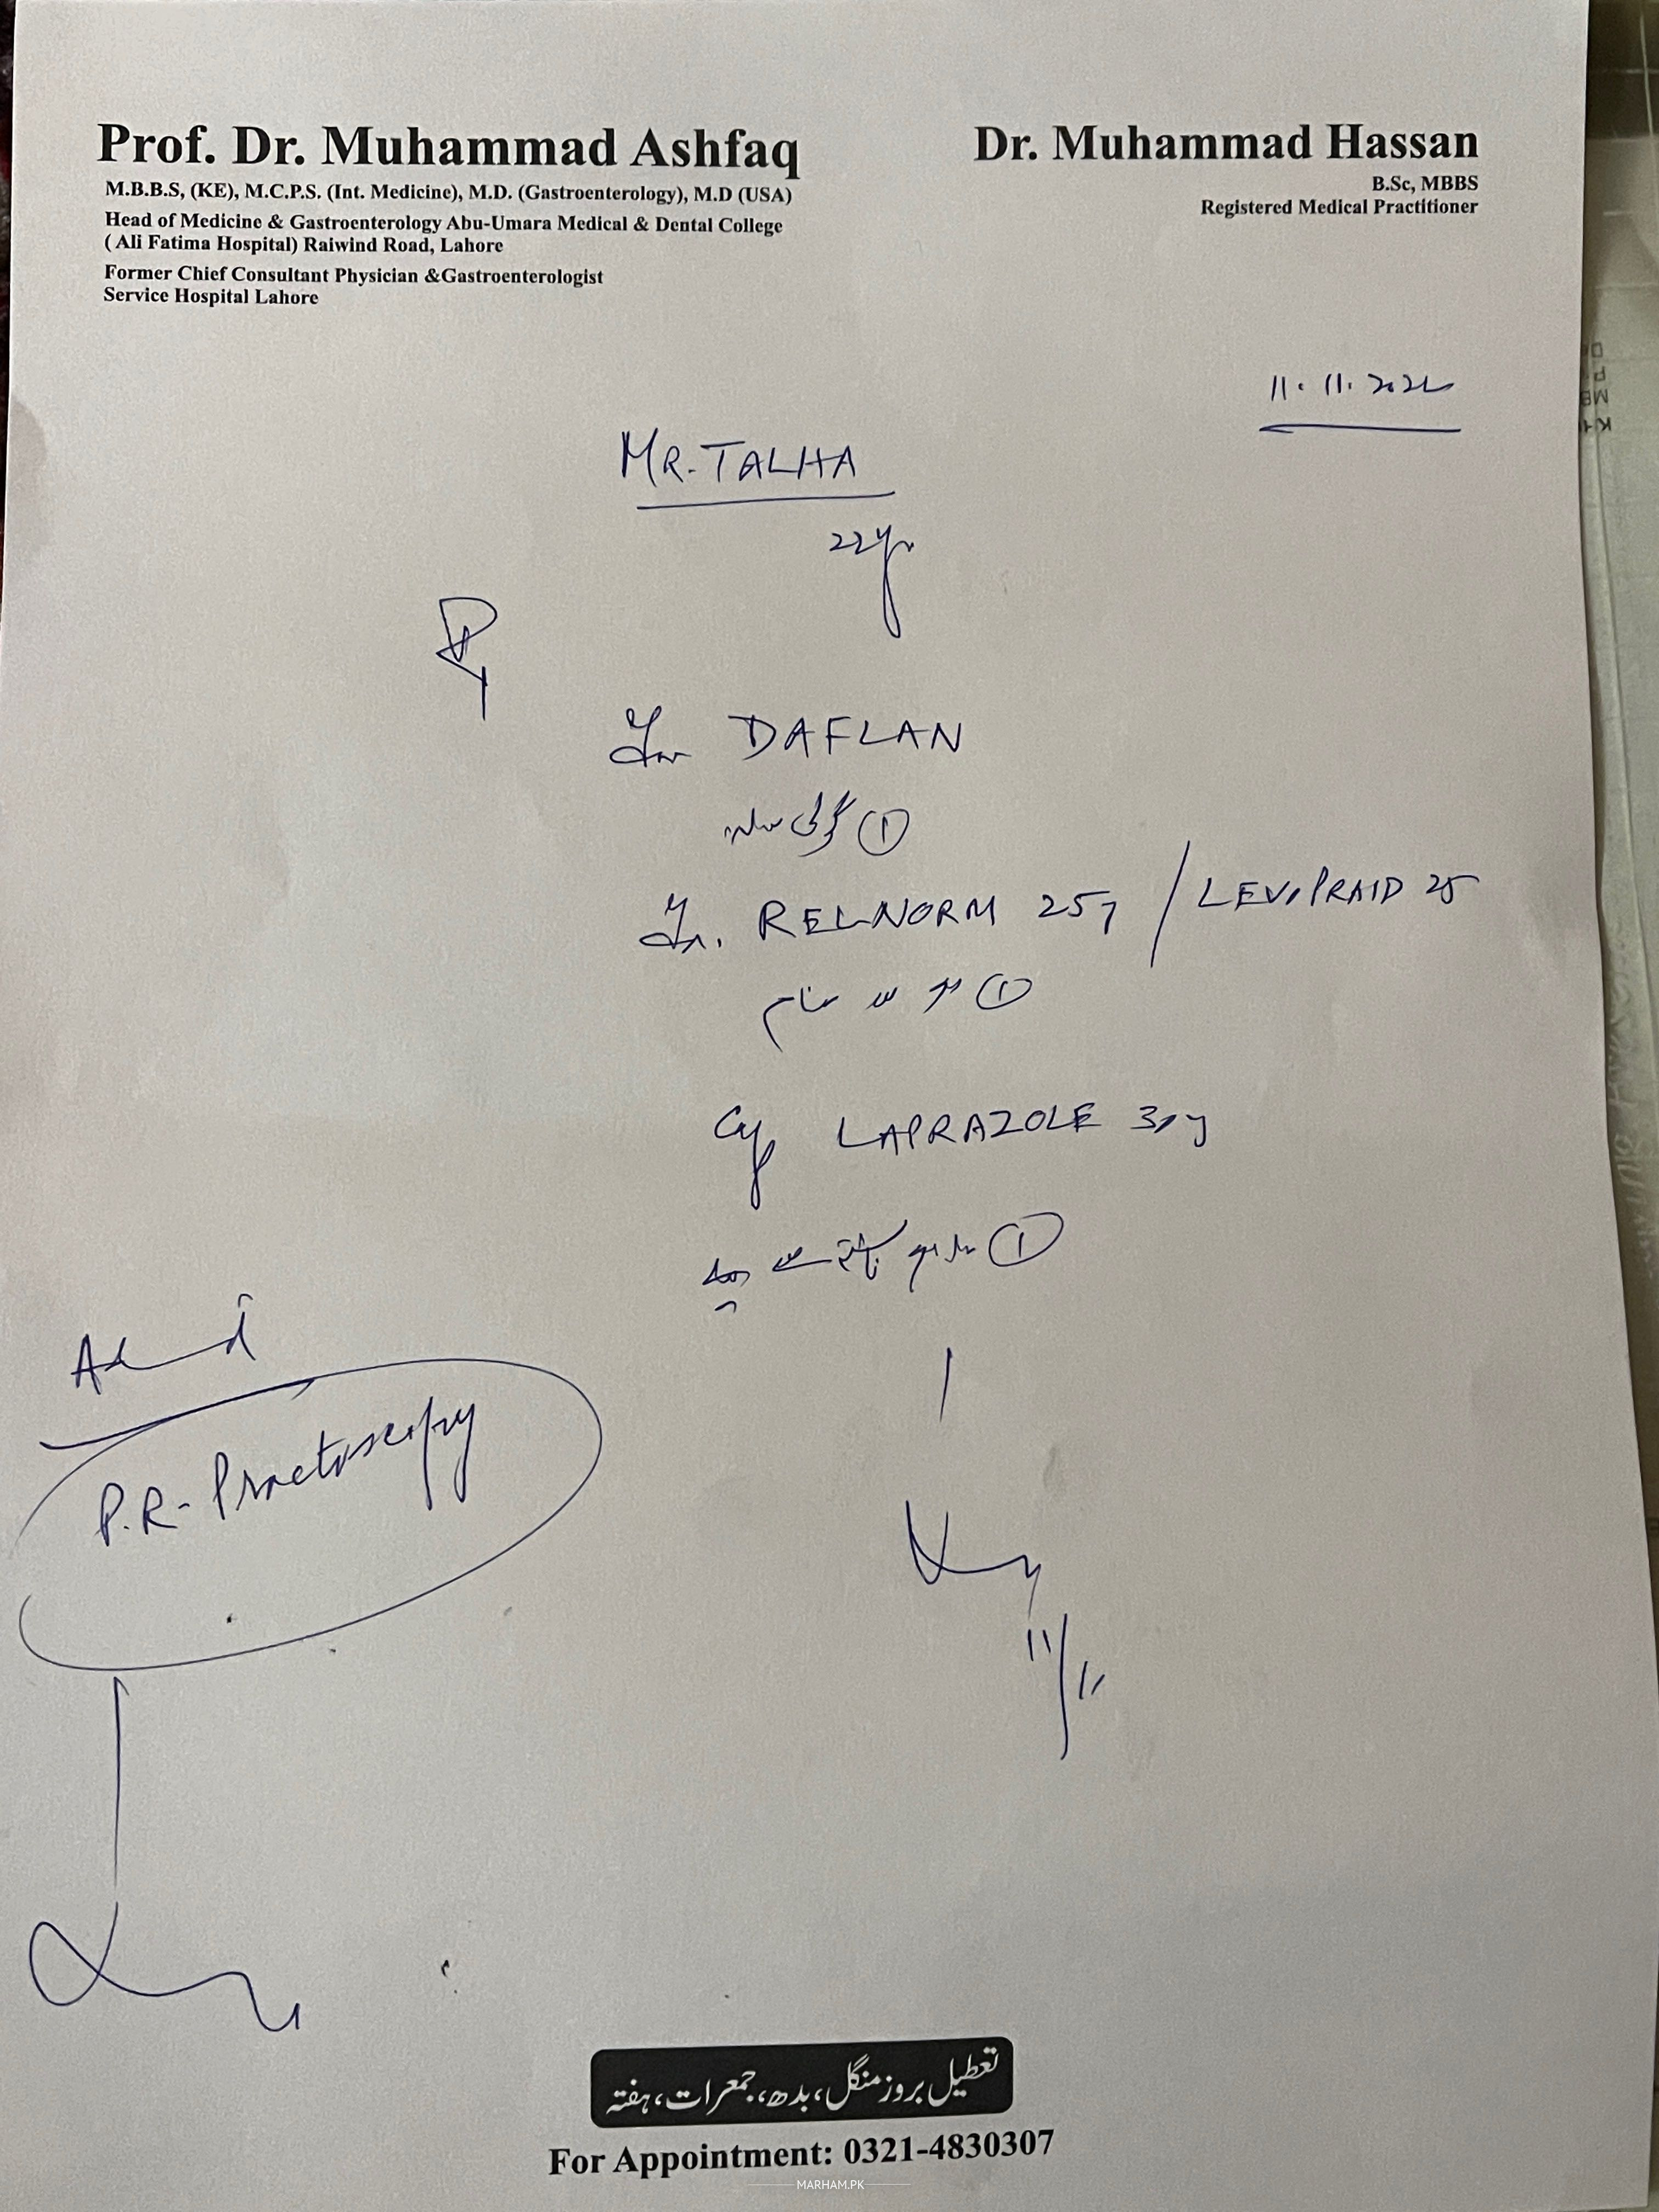 Prof. Dr. Muhammad Ashfaq
M.B.B.S, (KE), M.C.P.S. (Int. Medicine), M.D. (Gastroenterology), M.D (USA)
Head of Medicine & Gastroenterology Abu-Umara Medical & Dental College
( Ali Fatima Hospital) Raiwind Road, Lahore
Former Chief Consultant Physician &Gastroenterologist
Service Hospital Lahore
Dr. Muhammad Hassan
B.Sc, MBBS
Registered Medical Practitioner
11.11.2022
MR. TALHA
22yr
DAFLAN
① گولی
RELNORM 25 / LEVOPRAID 25
① شام
Cap LAPRAZOLE 30
①
P.R- Proctoscopy
11/11
تعطیل بروز منگل، بدھ، جمعرات، ہفتہ
For Appointment: 0321-4830307
MARHAM.PK